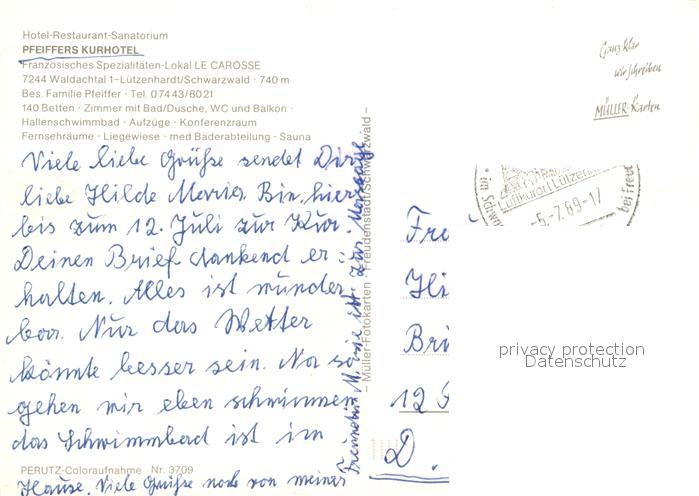 Hotel-Restaurant-Sanatorium
PFEIFFERS KURHOTEL
Französisches Spezialitäten-Lokal LE CAROSSE
7244 Waldachtal 1-Lützenhardt/Schwarzwald · 740 m
Bes. Familie Pfeiffer · Tel. 07443/8021
140 Betten · Zimmer mit Bad/Dusche, WC und Balkon ·
Hallenschwimmbad · Aufzüge · Konferenzraum
Fernsehräume · Liegewiese · med Bäderabteilung · Sauna
Viele liebe Grüße sendet Dir
liebe Hilde Maria. Bin hier
bis zum 12. Juli zur Kur.
Deinen Brief dankend er-
halten. Alles ist wunder
bar. Nur das Wetter
könnte besser sein. Na so
gehen wir eben schwimmen
das Schwimmbad ist im
Hause. Viele Grüße noch von meiner
Freundin M. sie ist zur Massage
PERUTZ-Coloraufnahme Nr. 3709
– Müller-Fotokarten · Freudenstadt/Schwarzwald –
Ganz klar
wir schreiben
MÜLLER-Karten
Luftkurort Lützen
im Schw
-5.-7.89-17
bei Freud
Fre
Hil
Bri
12
D.
privacy protection
Datenschutz